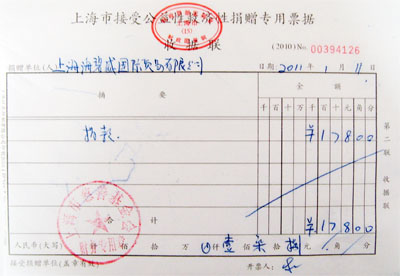 上海市接受公益性救济性捐赠专用票据
收据联
(2010) No 00394126
捐赠单位(人) 上海海碧威国际贸易有限公司 日期: 2011 年 1 月 11 日
摘 要 金 额
千 百 十 万 千 百 十 元 角 分
捐款 ¥ 1 7 8 0 0
合 计 ¥ 1 7 8 0 0
人民币(大写) 仟 佰 拾 万 仟 壹 佰 柒 拾 捌 元 角 分
接受捐赠单位(盖章有效) 开票人:
第二联 收据联
上海市慈善基金会